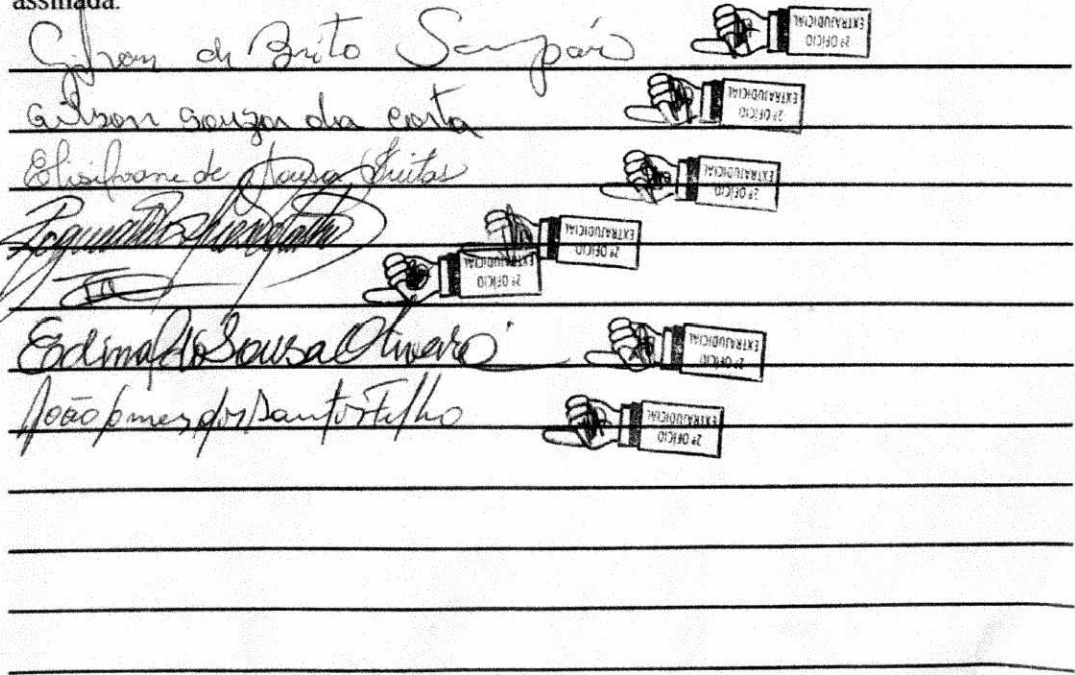 assinada.
de Brito 2º OFICIO EXTRAJUDICIAL
Gilson Souza da Costa 2º OFICIO EXTRAJUDICIAL
de Sousa Freitas 2º OFICIO EXTRAJUDICIAL
2º OFICIO EXTRAJUDICIAL
2º OFICIO EXTRAJUDICIAL
Edimaldo Sousa Oliveira 2º OFICIO EXTRAJUDICIAL
João dos Santos Filho 2º OFICIO EXTRAJUDICIAL